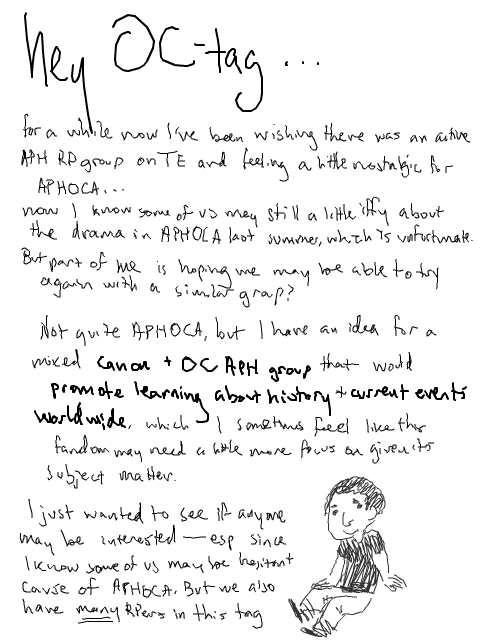 hey OC-tag ...
for a while now I've been wishing there was an active
APH RP group on TE and feeling a little nostalgic for
APHOCA...
now I know some of us may still a little iffy about
the drama in APHOCA last summer, which is unfortunate.
But part of me is hoping we may be able to try
again with a similar group?
Not quite APHOCA, but I have an idea for a
mixed canon + OC APH group that would
promote learning about history + current events
worldwide, which I sometimes feel like this
fandom may need a little more focus on given its
subject matter.
I just wanted to see if anyone
may be interested — esp since
I know some of us may be hesitant
cause of APHOCA. But we also
have many RPers in this tag